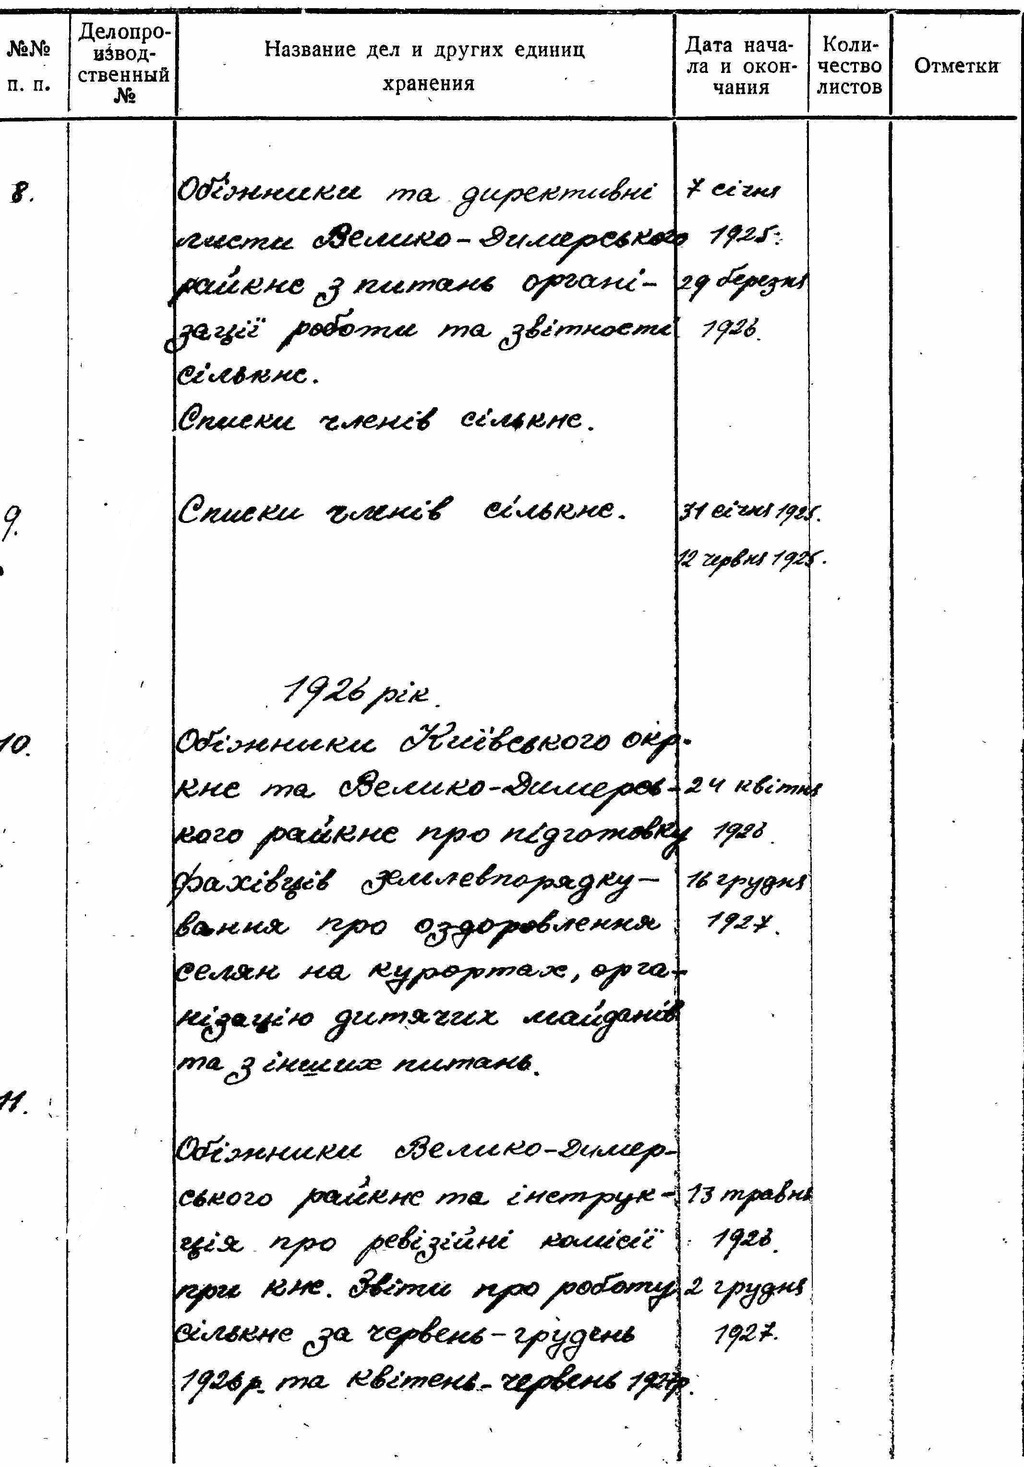 №№ п. п. Делопроизводственный № Название дел и других единиц хранения Дата начала и окончания Количество листов Отметки
8. Обіжники та директивні 7 січня
листи Велико-Димерського 1925-
райкнс з питань органі- 29 березня
зації роботи та звітності 1926.
сількнс.
Списки членів сількнс.
9. Списки членів сількнс. 31 січня 1925.
12 червня 1925.
1926 рік.
10. Обіжники Київського окр-
кнс та Велико-Димерсь- 24 квітня
кого райкнс про підготовку 1926
фахівців землевпорядку- 16 грудня
вання про оздоровлення 1927.
селян на курортах, орга-
нізацію дитячих майданів
та з інших питань.
11.
Обіжники Велико-Димер-
ського райкнс та інструк- 13 травня
ція про ревізійні комісії 1926.
при кнс. Звіти про роботу 2 грудня
сількнс за червень-грудень 1927.
1926р. та квітень-червень 1927р.